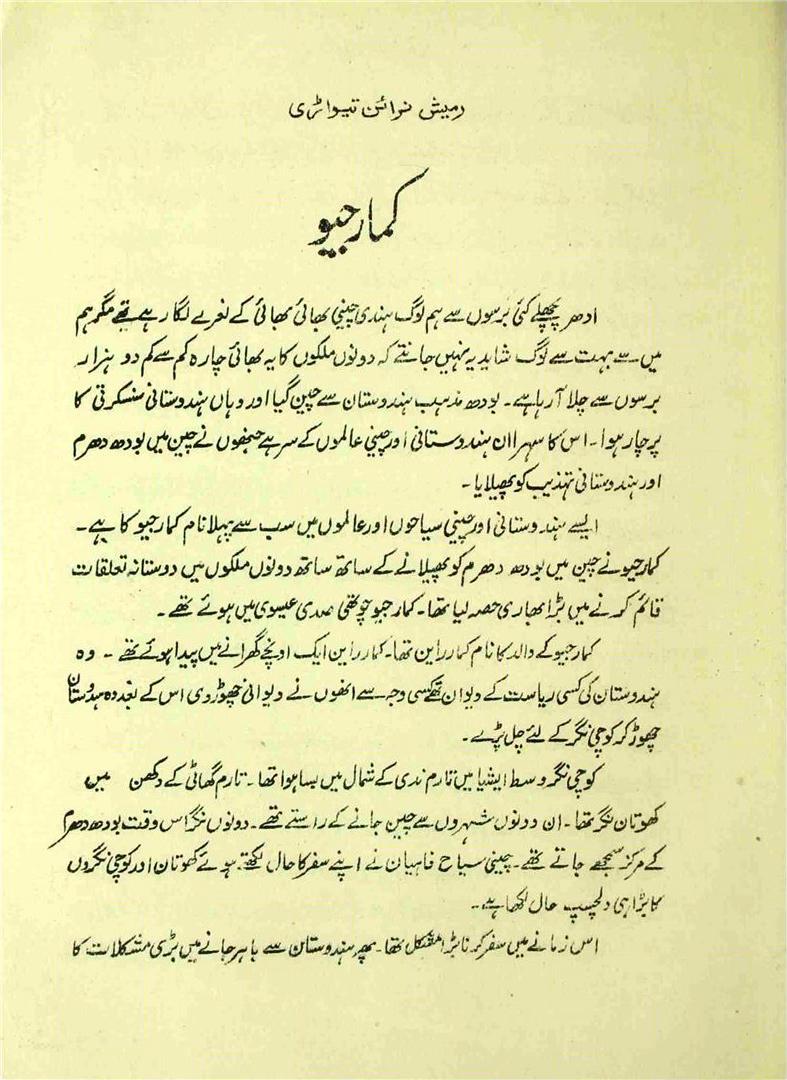 رمیش نرائن تیواڑی
کمار جیو
ادھر پچھلے کئی برسوں سے ہم لوگ ہندی چینی بھائی بھائی کے نعرے لگا رہے تھے مگر ہم
میں سے بہت سے لوگ شاید یہ نہیں جانتے کہ دونوں ملکوں کا یہ بھائی چارہ کم سے کم دو ہزار
برسوں سے چلا آ رہا ہے۔ بودھ مذہب ہندوستان سے چین گیا اور وہاں ہندوستانی سنسکرتی کا
پرچار ہوا۔ اس کا سہرا ان ہندوستانی اور چینی عالموں کے سر ہے جنھوں نے چین میں بودھ دھرم
اور ہندوستانی تہذیب کو پھیلایا۔
ایسے ہندوستانی اور چینی سیاحوں اور عالموں میں سب سے پہلا نام کمار جیو کا ہے۔
کمار جیو نے چین میں بودھ دھرم کو پھیلانے کے ساتھ ساتھ دونوں ملکوں میں دوستانہ تعلقات
قائم کرنے میں بڑا بھاری حصہ لیا تھا۔ کمار جیو چوتھی صدی عیسوی میں ہوئے تھے۔
کمار جیو کے والد کا نام کمار راین تھا۔ کمار راین ایک اونچے گھرانے میں پیدا ہوئے تھے۔ وہ
ہندوستان کی کسی ریاست کے دیوان تھے کسی وجہ سے انھوں نے دیوانی چھوڑ دی اس کے بعد وہ ہندوستان
چھوڑ کر کوچی نگر کے لئے چل پڑے۔
کوچی نگر وسط ایشیا میں تارم ندی کے شمال میں بسا ہوا تھا۔ تارم گھاٹی کے دکھن میں
کھوتان نگر تھا۔ ان دونوں شہروں سے چین جانے کے راستے تھے۔ دونوں نگر اس وقت بودھ دھرم
کے مرکز سمجھے جاتے تھے۔ چینی سیاح فاہیان نے اپنے سفر کا حال لکھتے ہوئے کھوتان اور کوچی نگروں
کا بڑا ہی دلچسپ حال لکھا ہے۔
اس زمانے میں سفر کرنا بڑا مشکل تھا۔ پھر ہندوستان سے باہر جانے میں بڑی مشکلات کا